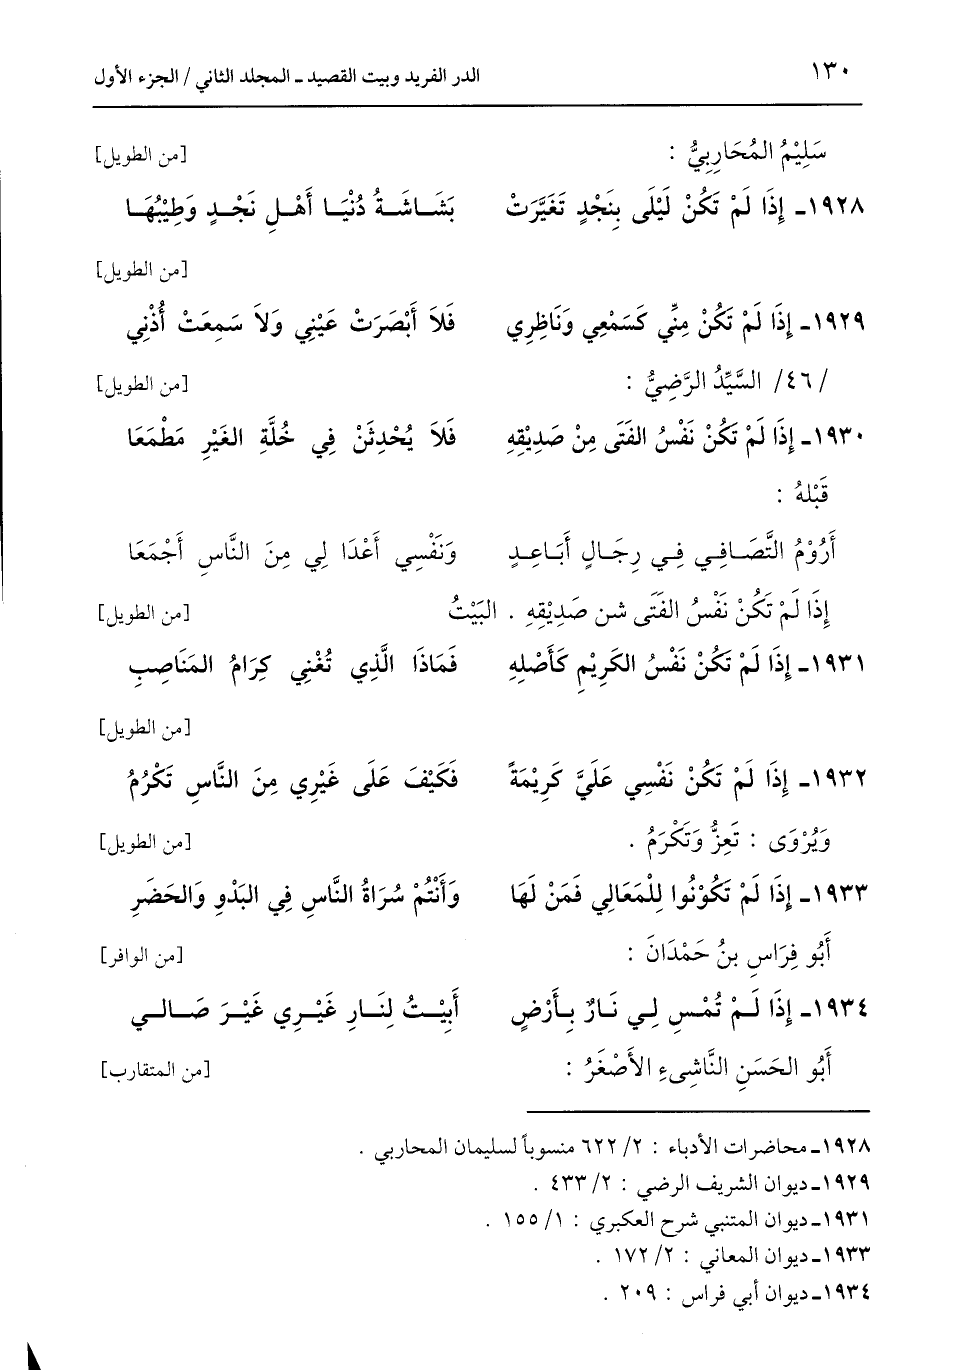 ١٣٠ الدر الفريد وبيت القصيد ـ المجلد الثاني / الجزء الأول
سَلِيْمُ المُحَارِبِيُّ : [من الطويل]
١٩٢٨ـ إِذَا لَمْ تَكُنْ لَيْلَى بِنَجْدٍ تَغَيَّرَتْ بَشَاشَةُ دُنْيَا أَهْلِ نَجْدٍ وَطِيْبُهَا
[من الطويل]
١٩٢٩ـ إِذَا لَمْ تَكُنْ مِنِّي كَسَمْعِي وَنَاظِرِي فَلاَ أَبْصَرَتْ عَيْنِي وَلاَ سَمِعَتْ أُذْنِي
/ ٤٦/ السَّيِّدُ الرَّضِيُّ : [من الطويل]
١٩٣٠ـ إِذَا لَمْ تَكُنْ نَفْسُ الفَتَى مِنْ صَدِيْقِهِ فَلاَ يُحْدِثَنْ فِي خُلَّةِ الغَيْرِ مَطْمَعَا
قَبْلهُ :
أَرُوْمُ التَّصَافِي فِي رِجَالٍ أَبَاعِدٍ وَنَفْسِي أَعْدَا لِي مِنَ النَّاسِ أَجْمَعَا
إِذَا لَمْ تَكُنْ نَفْسُ الفَتَى شن صَدِيْقِهِ . البَيْتُ [من الطويل]
١٩٣١ـ إِذَا لَمْ تَكُنْ نَفْسُ الكَرِيْمِ كَأَصْلِهِ فَمَاذَا الَّذِي تُغْنِي كِرَامُ المَنَاصِبِ
[من الطويل]
١٩٣٢ـ إِذَا لَمْ تَكُنْ نَفْسِي عَلَيَّ كَرِيْمَةً فَكَيْفَ عَلَى غَيْرِي مِنَ النَّاسِ تَكْرُمُ
وَيُرْوَى : تَعِزُّ وَتَكْرَمُ . [من الطويل]
١٩٣٣ـ إِذَا لَمْ تَكُوْنُوا لِلْمَعَالِي فَمَنْ لَهَا وَأَنْتُمْ سُرَاةُ النَّاسِ فِي البَدْوِ وَالحَضَرِ
أَبُو فِرَاسِ بنُ حَمْدَانَ : [من الوافر]
١٩٣٤ـ إِذَا لَمْ تُمْسِ لِي نَارٌ بِأَرْضٍ أَبِيْتُ لِنَارِ غَيْرِي غَيْرَ صَالِي
أَبُو الحَسَنِ النَّاشِىءِ الأَصْغَرُ : [من المتقارب]
١٩٢٨ـ محاضرات الأدباء : ٢/ ٦٢٢ منسوباً لسليمان المحاربي .
١٩٢٩ـ ديوان الشريف الرضي : ٢/ ٤٣٣ .
١٩٣١ـ ديوان المتنبي شرح العكبري : ١/ ١٥٥ .
١٩٣٣ـ ديوان المعاني : ٢/ ١٧٢ .
١٩٣٤ـ ديوان أبي فراس : ٢٠٩ .